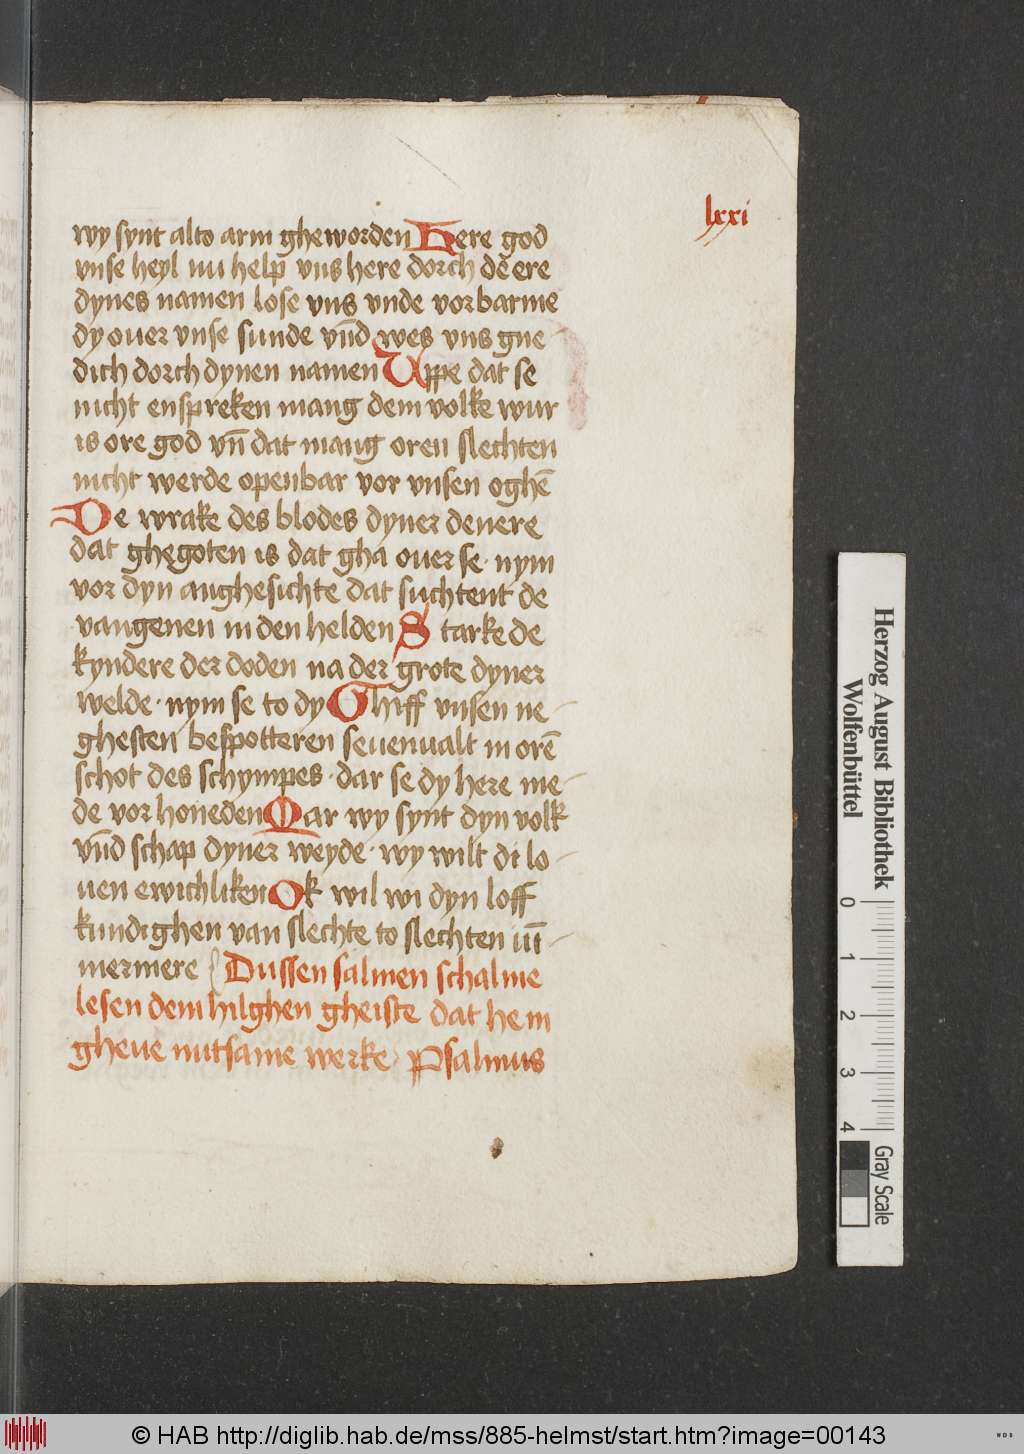 lxxi
wy synt alto arm gheworden Here god
vnse heyl nu help vns here dorch de ere
dynes namen lose vns vnde vorbarme
dy ouer vnse sunde vn̄d wes vns gne
dich dorch dynen namen Uppe dat se
nicht enspreken mang dem volke wur
is ore god vn̄ dat mang oren slechten
nicht werde openbar vor vnsen oghē
De wrake des blodes dyner denere
dat ghegoten is dat gha ouer se · nym
vor dyn anghesichte dat suchtent de
vangenen in den helden Starke de
kyndere der doden na der grote dyner
welde · nym se to dy Ghiff vnsen ne
ghesten bespotteren seuenualt in orē
schot des schympes · dar se dy here me
de vor honeden Mar wy synt dyn volk
vn̄d schap dyner weyde · wy wilt di lo
uen ewichliken Ok wil wi dyn loff
kundighen van slechte to slechten iūi
mermere Dussen salmen schalme
lesen dem hilghen gheiste dat he in
gheue nutsame werke Psalmus
Herzog August Bibliothek
Wolfenbüttel
0 1 2 3 4
Gray Scale
© HAB http://diglib.hab.de/mss/885-helmst/start.htm?image=00143